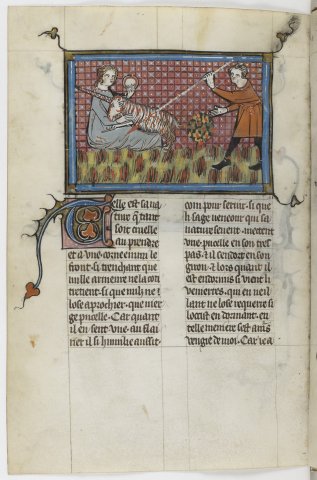 celle est sa na
ture q̃ tant
soit cruelle
au prendre
et a vne corne enmi le
front si trenchant que
nulle armeure ne la con
tretient si que nulz ne
lose aprochier que mier
ge pucelle Car quant
il en sent vne au flai
rier il si humilie aussit
com pour seruir si que
li sage veneour qui sa
nature seiuent metent
vne pucelle en son tres
pas ⁊ il sendort en son
giron ⁊ lors quant il
est endormis si vient li
veneres qui en ueil
lant ne lose requerre si
locist en dormant en
telle meniere sest amo
vengie de moi Car ie a